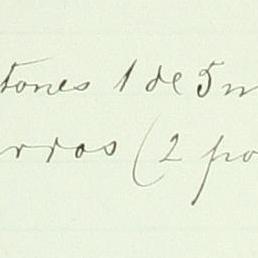 tones 1 de 5 m
rros (2 po